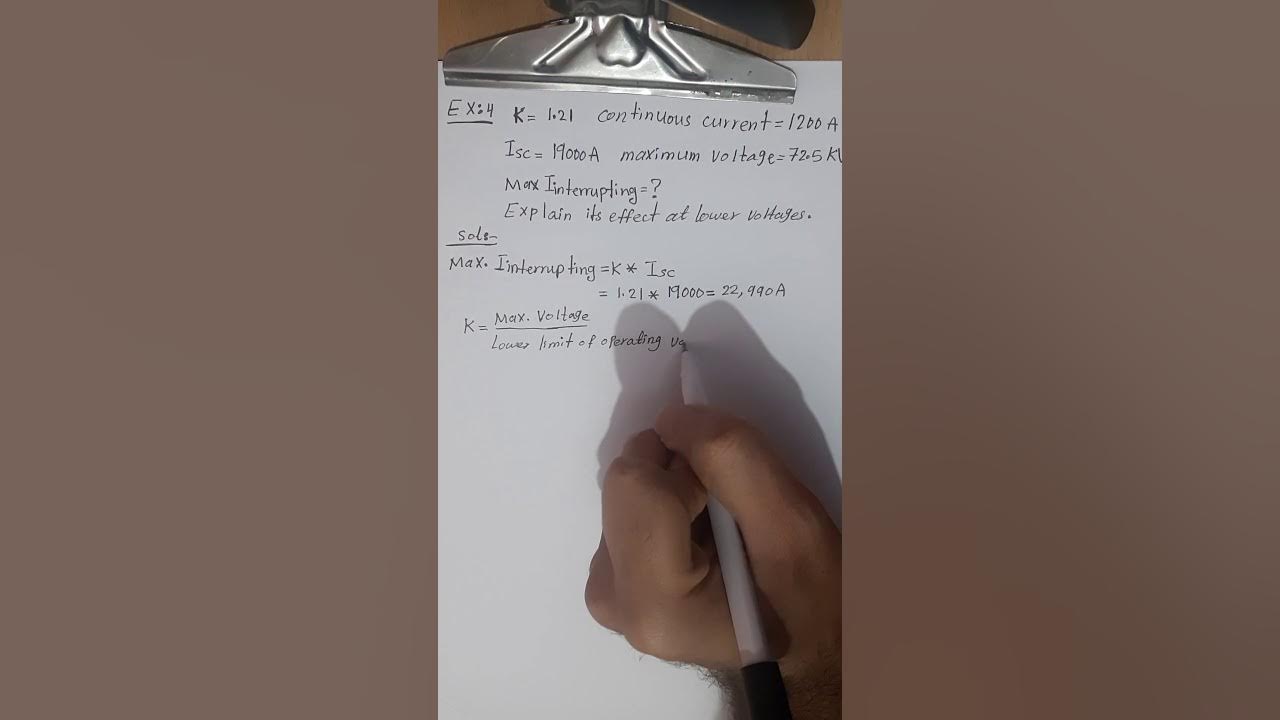 EX:4 K= 1.21 continuous current = 1200 A
Isc = 19000A maximum voltage = 72.5 kV
Max Iinterrupting = ?
Explain its effect at lower voltages.
Sol:-
Max. Iinterrupting = K * Isc
= 1.21 * 19000 = 22,990A
K = Max. Voltage
Lower limit of operating vo